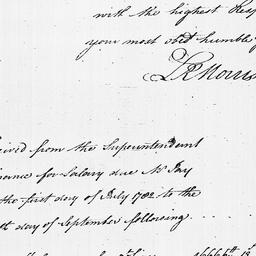 with the highest Resp
your most obed humble
R Morris
eived from the Superintendent
inance for Salary due Mr Jay
the first day of July 1782 to the
st day of September following